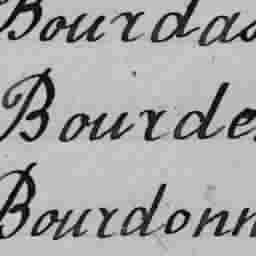 Bourdas
Bourdes
Bourdonn